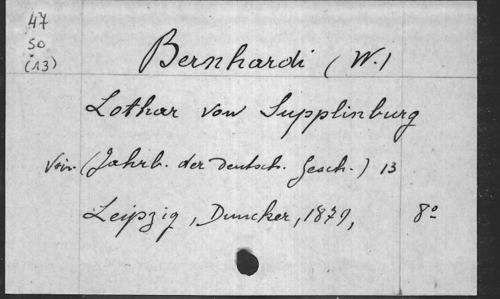 47
50
(13)
Bernhardi (W.)
Lothar von Supplinburg
Voir (Jahrb. der Deutsch. Gesch.) 13
Leipzig, Duncker, 1879, 8º